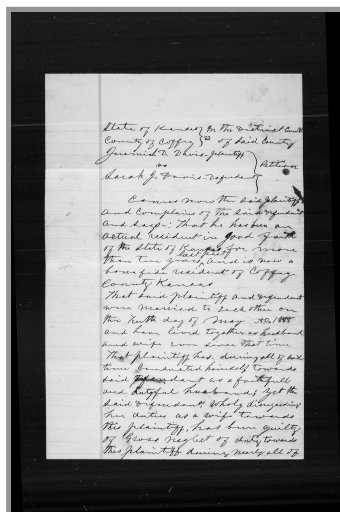 State of Kansas } In the District Court
County of Coffey } ss of said County
Jeremiah D. Davis - plaintiff
vs } Petition
Sarah J. Davis - Defendant
Comes now the said plaintiff
and complains of the said Defendant
and says: that he has been an
actual resident in good faith
of the State of Kansas for more
than two years last past and is now a
bonafide resident of Coffey
County Kansas
That said plaintiff and Defendant
were married to each other on
the day of May AD
and have lived together as husband
and wife ever since that time
That plaintiff has during all of said
time conducted himself towards
said defendant as a faithfull
and dutyful husband; yet the
said Defendant wholy disregarding
her duties as a wife towards
this plaintiff, has been guilty
of Gross neglect of duty towards
this plaintiff during nearly all of